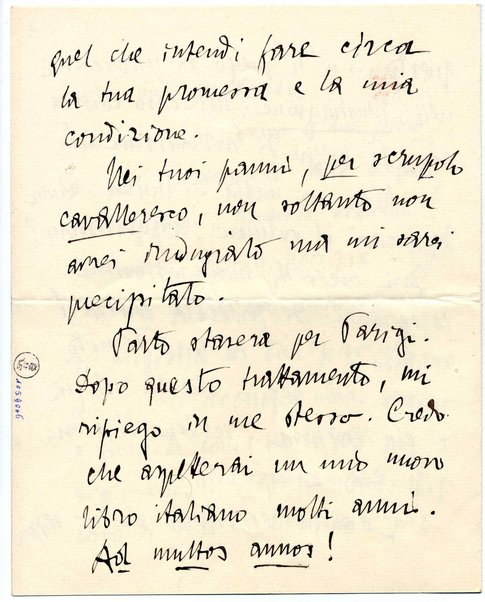 quel che intendi fare circa
la tua promessa e la mia
condizione.
Nei tuoi panni, per scrupolo
cavalleresco, non soltanto non
avrei indugiato ma mi sarei
precipitato.
Parto stasera per Parigi.
Dopo questo trattamento, mi
ripiego in me stesso. Credo
che aspetterai un mio nuovo
libro italiano molti anni.
Ad multos annos!